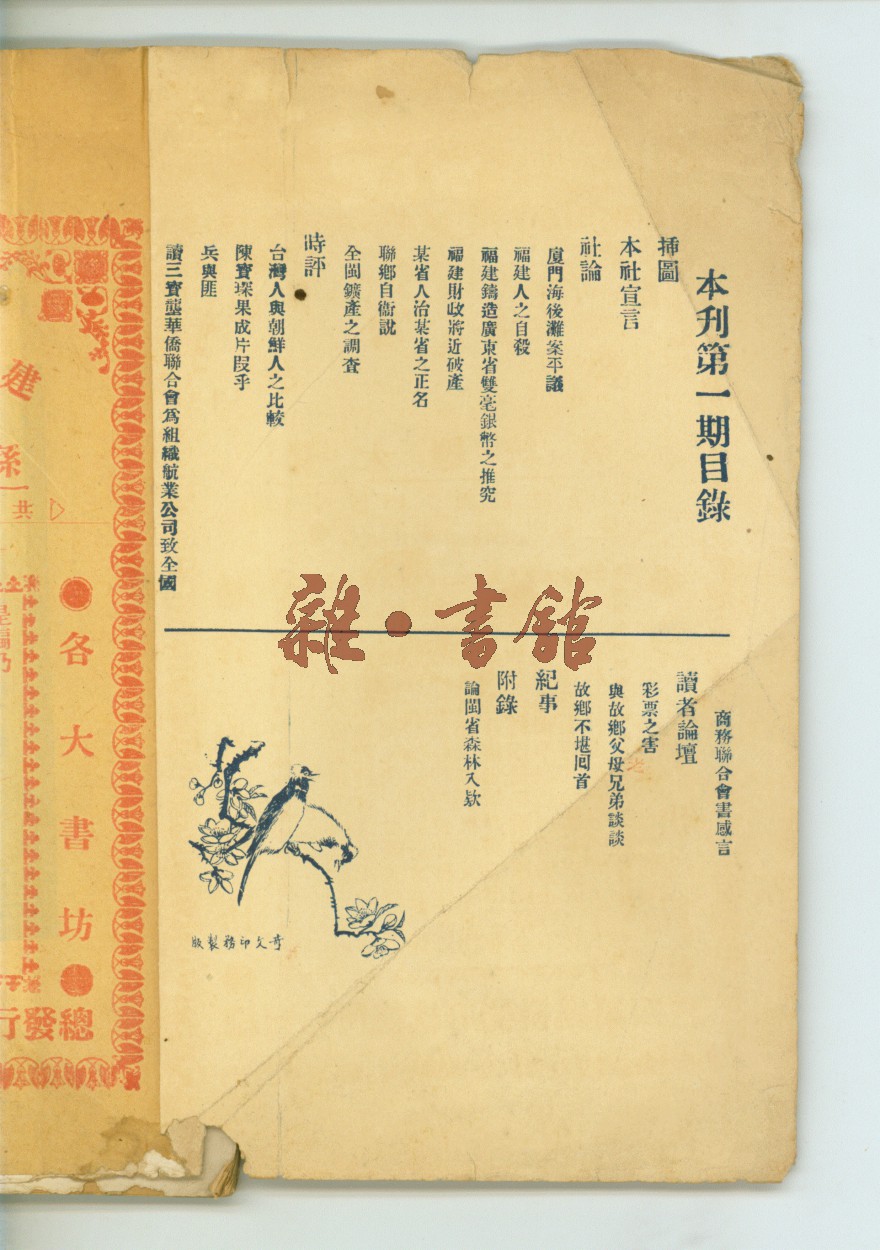 本刋第一期目錄
揷圖
本社宣言
社論
廈門海後灘案平議
福建人之自殺
福建鑄造廣東省雙毫銀幣之推究
福建財政將近破產
某省人治某省之正名
聯鄉自衞說
全閩鑛產之調查
時評
台灣人與朝鮮人之比較
陳寶琛果成片段乎
兵與匪
讀三寶壟華僑聯合會爲組織航業公司致全國
商務聯合會書感言
讀者論壇
彩票之害
與故鄉父母兄弟談談
故鄉不堪囘首
紀事
附錄
論閩省森林入欵
奇文印務製版
雜·書館
建
孫
一
共
各大書坊
總發行
是編乃